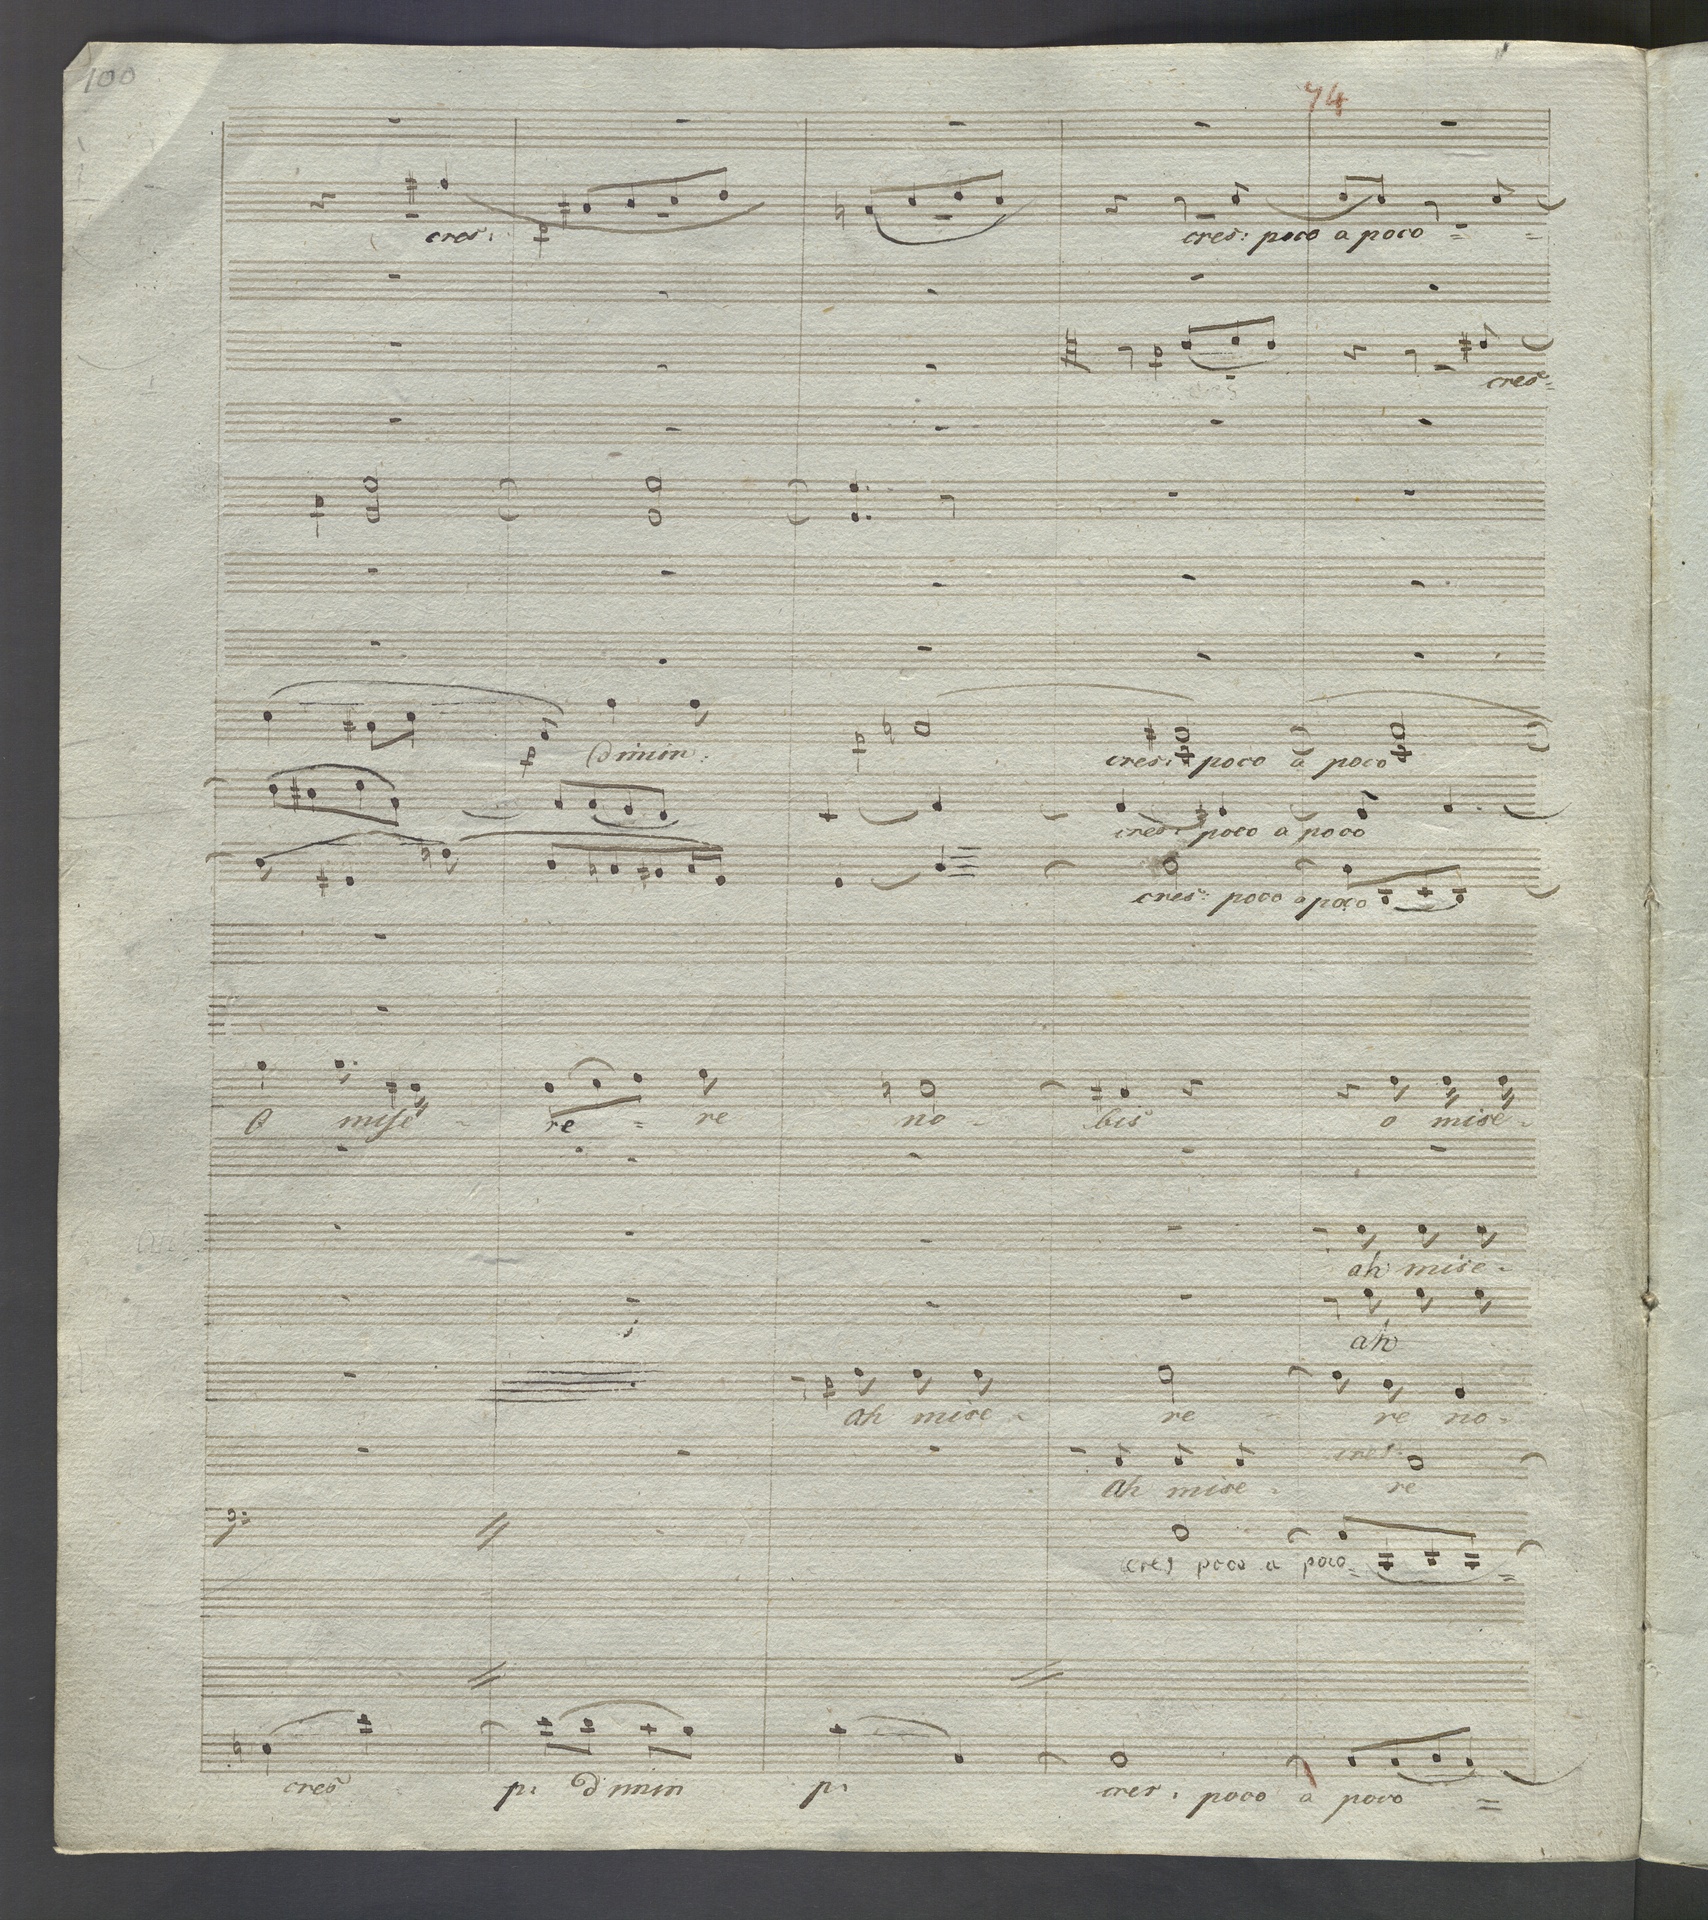 100
74
cres: p cres: poco a poco = =
p
cres =
p
p dimin: p cres: poco a poco
cres: poco a poco
cres: poco a poco
O mise - re = re no - bis o mise -
ah mise -
ah
p
ah mise - re - re no -
cres:
Ah mise - re
cres poco a poco = =
cres p: dimin p: cres: poco a poco =